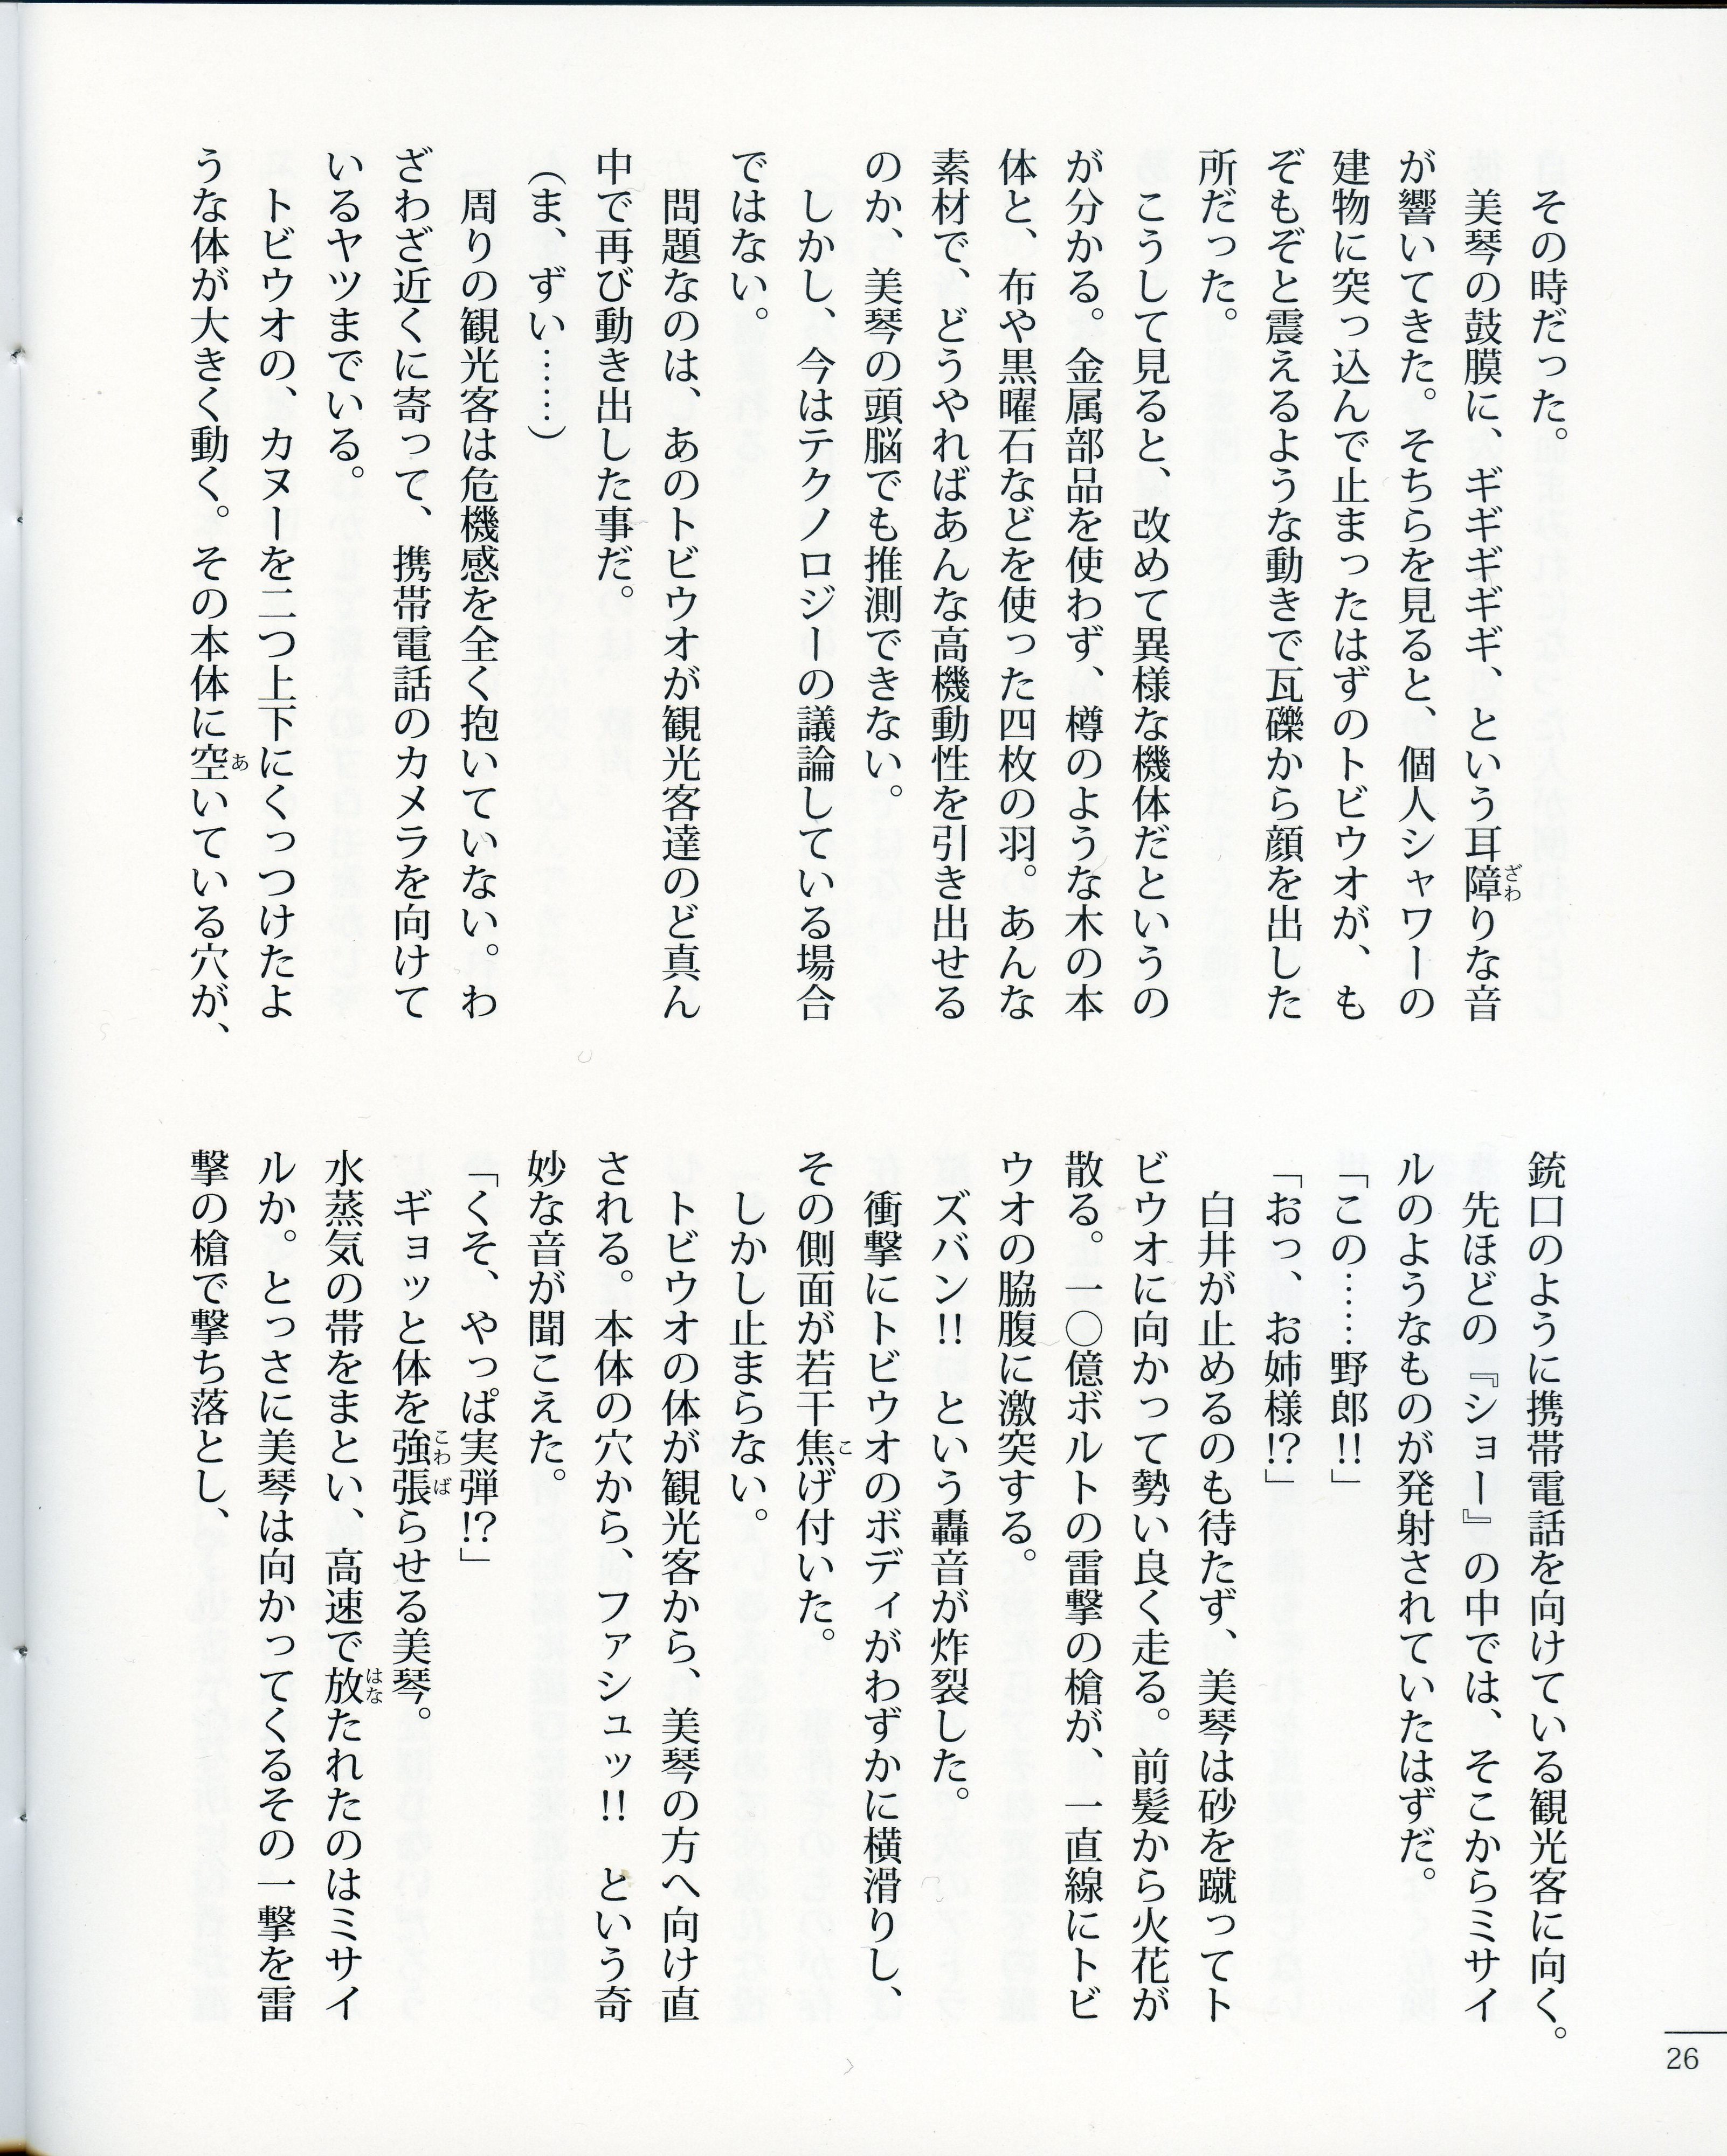 その時だった。
美琴の鼓膜に、ギギギギギ、という耳障りな音
が響いてきた。そちらを見ると、個人シャワーの
建物に突っ込んで止まったはずのトビウオが、も
ぞもぞと震えるような動きで瓦礫から顔を出した
所だった。
こうして見ると、改めて異様な機体だというの
が分かる。金属部品を使わず、樽のような木の本
体と、布や黒曜石などを使った四枚の羽。あんな
素材で、どうやればあんな高機動性を引き出せる
のか、美琴の頭脳でも推測できない。
しかし、今はテクノロジーの議論している場合
ではない。
問題なのは、あのトビウオが観光客達のど真ん
中で再び動き出した事だ。
(ま、ずい……)
周りの観光客は危機感を全く抱いていない。わ
ざわざ近くに寄って、携帯電話のカメラを向けて
いるヤツまでいる。
トビウオの、カヌーを二つ上下にくっつけたよ
うな体が大きく動く。その本体に空いている穴が、
銃口のように携帯電話を向けている観光客に向く。
先ほどの『ショー』の中では、そこからミサイ
ルのようなものが発射されていたはずだ。
「この……野郎!!」
「おっ、お姉様!?」
白井が止めるのも待たず、美琴は砂を蹴ってト
ビウオに向かって勢い良く走る。前髪から火花が
散る。一〇億ボルトの雷撃の槍が、一直線にトビ
ウオの脇腹に激突する。
ズバン!! という轟音が炸裂した。
衝撃にトビウオのボディがわずかに横滑りし、
その側面が若干焦げ付いた。
しかし止まらない。
トビウオの体が観光客から、美琴の方へ向け直
される。本体の穴から、ファシュッ!! という奇
妙な音が聞こえた。
「くそ、やっぱ実弾!?」
ギョッと体を強張らせる美琴。
水蒸気の帯をまとい、高速で放たれたのはミサイ
ルか。とっさに美琴は向かってくるその一撃を雷
撃の槍で撃ち落とし、
26